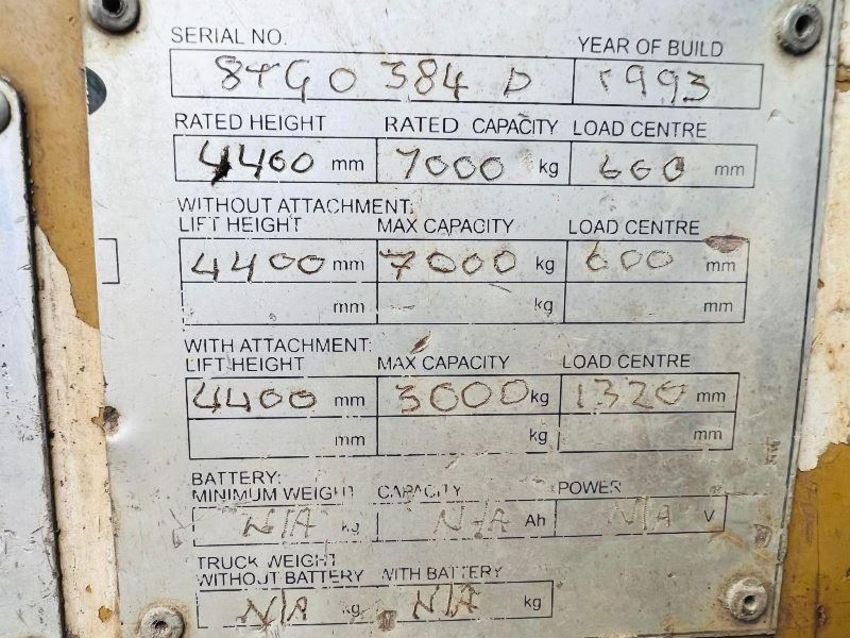 SERIAL NO. YEAR OF BUILD
8TG0384D 1993
RATED HEIGHT RATED CAPACITY LOAD CENTRE
4400 mm 7000 kg 600 mm
WITHOUT ATTACHMENT:
LIFT HEIGHT MAX CAPACITY LOAD CENTRE
4400 mm 7000 kg 600 mm
mm kg mm
WITH ATTACHMENT:
LIFT HEIGHT MAX CAPACITY LOAD CENTRE
4400 mm 3000 kg 1320 mm
mm kg mm
BATTERY:
MINIMUM WEIGHT CAPACITY POWER
N/A kg N/A Ah N/A V
TRUCK WEIGHT
WITHOUT BATTERY WITH BATTERY
N/A kg N/A kg